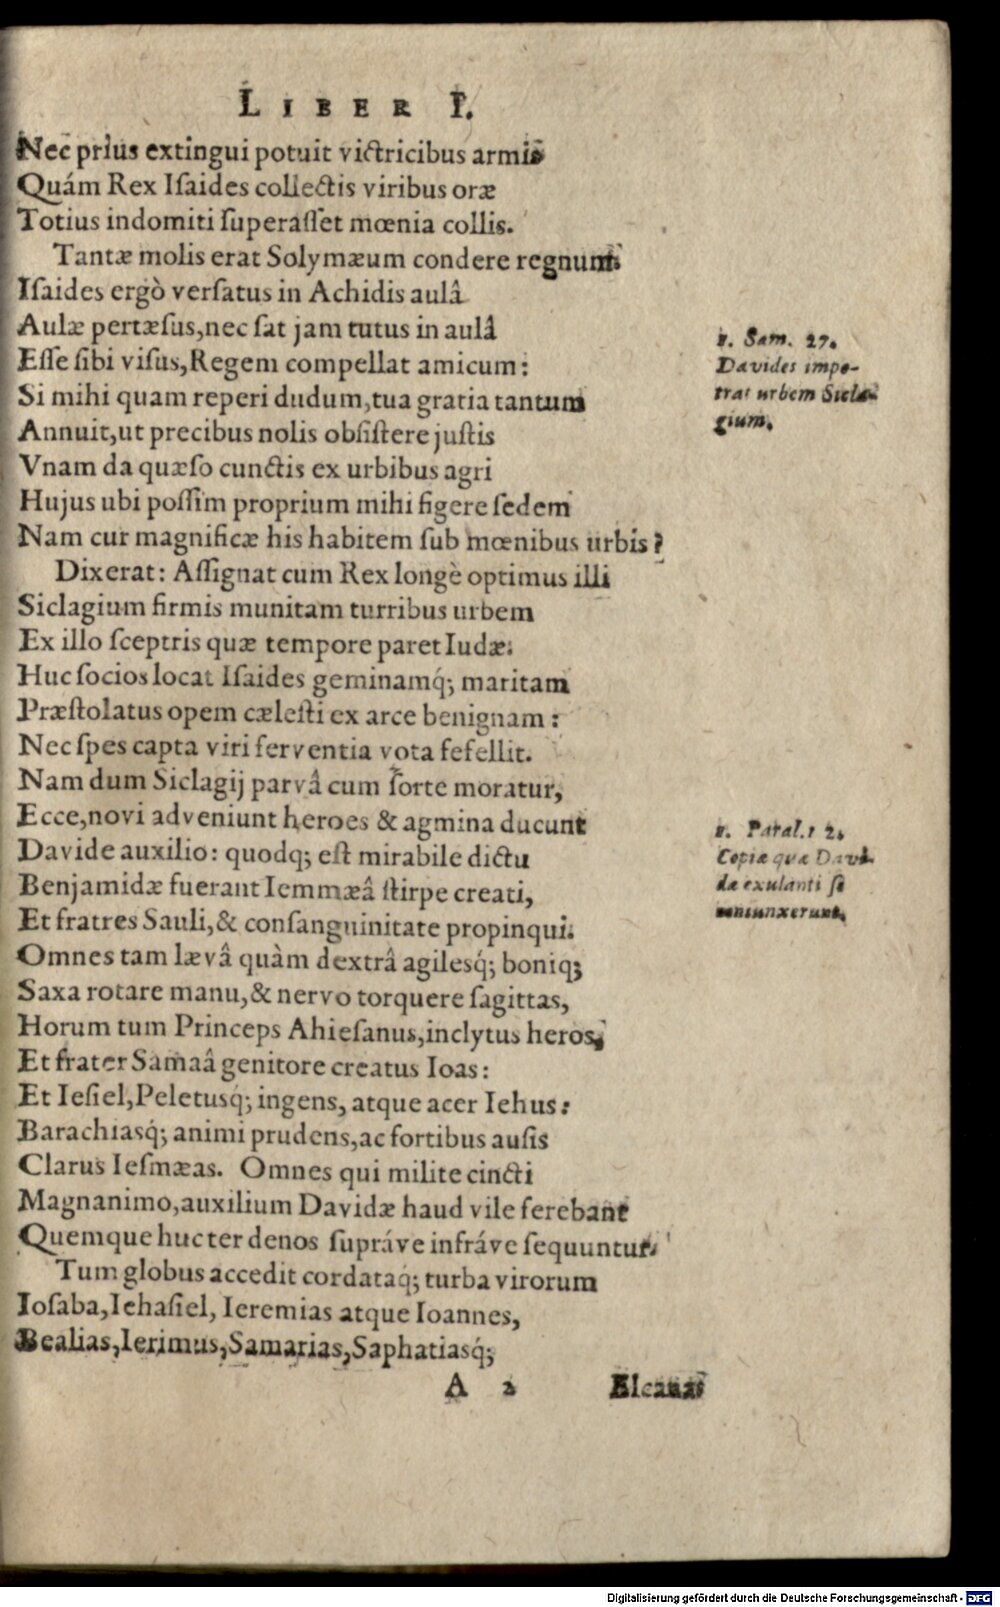 LIBER I.
Nec prius extingui potuit victricibus armis
Quám Rex Iſaides collectis viribus oræ
Totius indomiti ſuperaſſet mœnia collis.
Tantæ molis erat Solymæum condere regnum.
Iſaides ergò verſatus in Achidis aulâ
Aulæ pertæſus, nec ſat jam tutus in aulâ
Eſſe ſibi viſus, Regem compellat amicum:
1. Sam. 27.
Davides impe-
trat urbem Sicla-
gium.
Si mihi quam reperi dudum, tua gratia tantum
Annuit, ut precibus nolis obſiſtere juſtis
Vnam da quæſo cunctis ex urbibus agri
Hujus ubi poſſim proprium mihi figere ſedem
Nam cur magnificæ his habitem ſub mœnibus urbis?
Dixerat: Aſſignat cum Rex longè optimus illi
Siclagium firmis munitam turribus urbem
Ex illo ſceptris quæ tempore paret Iudæ.
Huc ſocios locat Iſaides geminamq́; maritam
Præſtolatus opem cæleſti ex arce benignam:
Nec ſpes capta viri ferventia vota fefellit.
Nam dum Siclagij parvâ cum ſorte moratur,
Ecce, novi adveniunt heroes & agmina ducunt
Davide auxilio: quodq; eſt mirabile dictu
1. Paral. 12.
Copiæ quæ Davi-
dæ exulanti ſe
coniunxerunt.
Benjamidæ fuerant Iemmæâ ſtirpe creati,
Et fratres Sauli, & conſanguinitate propinqui.
Omnes tam lævâ quàm dextrâ agilesq́; boniq;
Saxa rotare manu, & nervo torquere ſagittas,
Horum tum Princeps Ahieſanus, inclytus heros,
Et frater Samaâ genitore creatus Ioas:
Et Ieſiel, Peletusq́; ingens, atque acer Iehus:
Barachiasq́; animi prudens, ac fortibus auſis
Clarus Ieſmæas. Omnes qui milite cincti
Magnanimo, auxilium Davidæ haud vile ferebant
Quemque huc ter denos ſupráve infráve ſequuntur.
Tum globus accedit cordataq́; turba virorum
Ioſaba, Iehaſiel, Ieremias atque Ioannes,
Bealias, Ierimus, Samarias, Saphatiasq́;
A 2 Elcanas
Digitalisierung gefördert durch die Deutsche Forschungsgemeinschaft - DFG